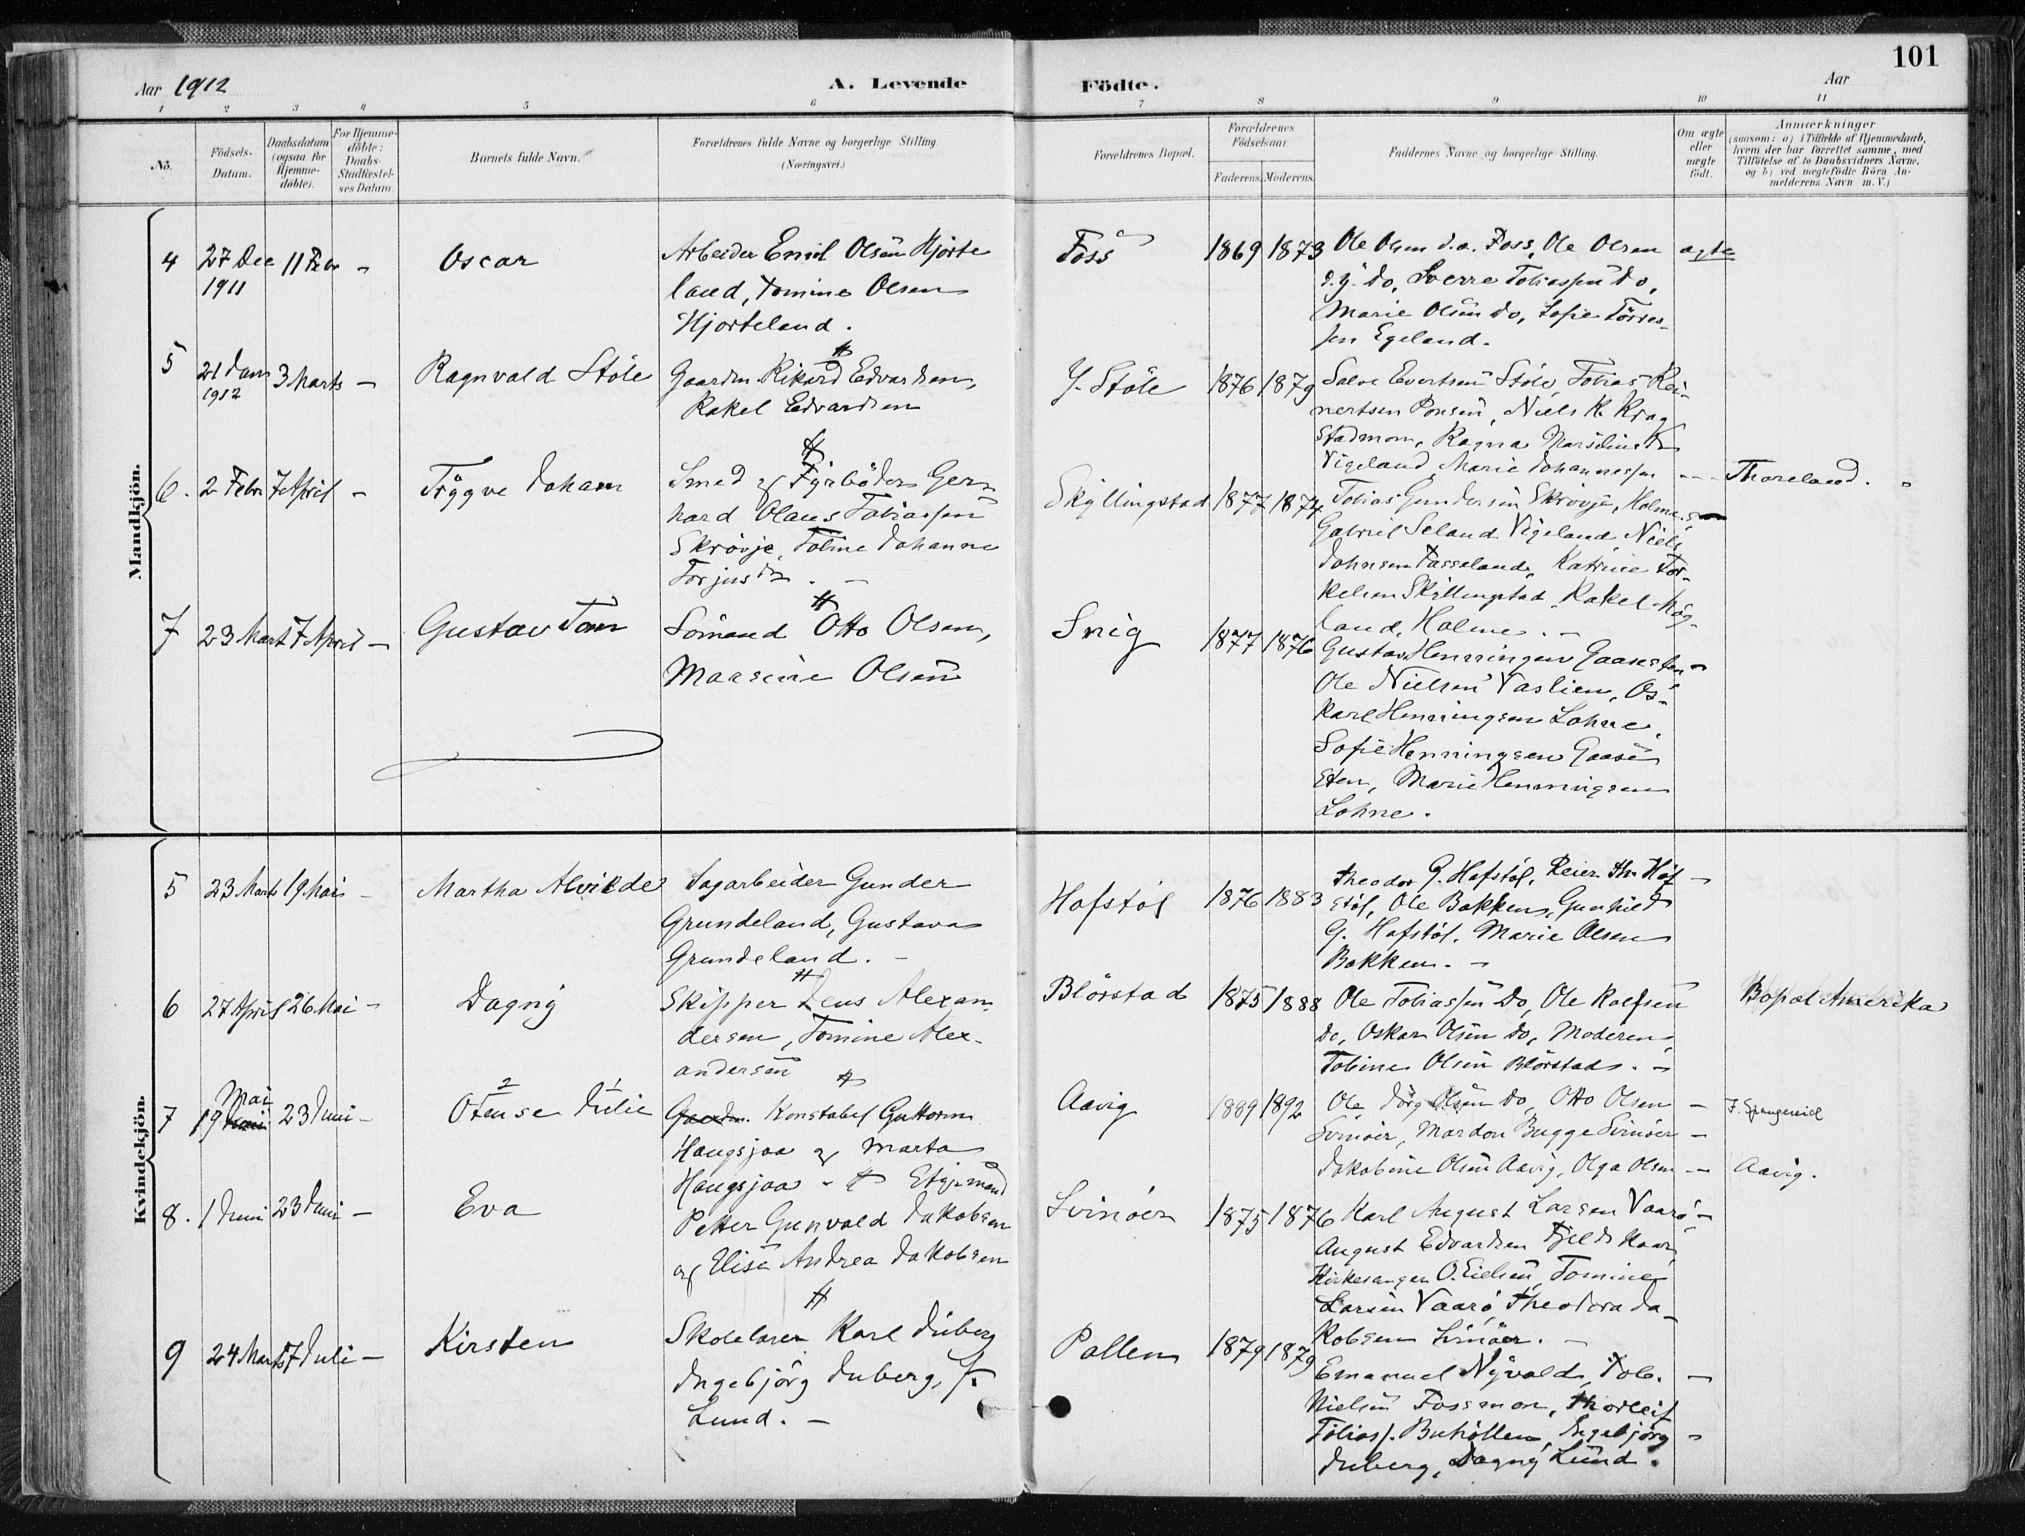 101
Aar 1912
A. Levende
Födte.
Aar
1 2 3 4 5 6 7 8 9 10 11
No.
Födsels-
Datum.
Daabsdatum
(ogsaa for
Hjemme-
döbte).
For Hjemme-
döbte:
Daabs-
Stadfæstel-
ses Datum.
Barnets fulde Navn.
Forældrenes fulde Navne og borgerlige Stilling
(Næringsvei.)
Forældrenes Bopæl.
Forældrenes
Födselsaar.
Faderens. Moderens.
Faddernes Navne og borgerlige Stilling.
Om ægte
eller
uægte
födt.
Anmærkninger
(saasom: a) i Tilfælde af Hjemmedaab,
hvem der har forrettet samme, med
Tilföielse af to Daabsvidners Navne,
og b) ved uægtefödte Börn An-
melderens Navn m. V.)
Mandkjön.
4
27 Dec
1911
11 Febr
Oscar
Arbeider Emil Olsen Hjorte
land, Tomine Olsen
Hjorteland.
Foss
1869 1873
Ole Olsen d.æ. Foss, Ole Olsen
d.y. do, Sverre Tobiassen do,
Marie Olsen do, Sofie Torres-
sen Egeland.
ægte
5
21 Jan
1912
3 Marts
Ragnvald Stöle
Gaardm. Rikard Edvardsen,
Rakel Edvardsen
Y. Stöle
1876 1879
Salve Evertsen Stöle, Tobias Rei-
nertsen Ponsen, Niels K. Krag
Stadmom, Ragna
Vigeland Marie Johannessen
Thoreland.
6.
2 Febr
7 April
Trygve Johan
Smed og Fyrböder Gern
hard Olaus Tobiassen
Skrövje, Tobine Johanne
Torjusd.
Skyllingstad
1877 1874
Tobias Gundersen Skrövje, Holme
Gabriel Seland Vigeland, Niels
Johnsen Tasseland, Katrine Tor-
kelsen Skyllingstad, Rakel Hög-
land, Holme.
7
23 Marts
7 April
Gustav Tom
Sömand Otto Olsen,
Maasine Olsen
Snig
1877 1876
Gustav Henningsen Gaasesten
Ole Nielsen Vaslien, Os-
kar Henningsen Lohne,
Sofie Henningsen Gaase
sten, Marie Henningsen
Lohne.
Kvindekjön.
5
23 Marts
19 Mai
Martha Alvilde
Sagarbeider Gunder
Grundeland, Gustava
Grundeland.
Hofstöl
1876 1883
Theodor G. Hofstöl, Reier Th. Hof
stöl, Ole Bakken, Gunhild
G. Hofstöl, Marie Olsen
Bakken.
6
27 April
26 Mai
Dagny
Skipper Jens Alexan-
dersen, Tomine Alex-
andersen
Blörstad
1875 1888
Ole Tobiassen do, Ole Rolfsen
do, Oskar Olsen do, Moderen,
Tobine Olsen Blörstad.
Bopæl Amerika
7
Mai
19
23 Juni
Otense Julie
2 1
Gaardm. Konstabel Guttorm
Haugsjaa og Marta
Haugsjaa
Aavig
1889 1892
Ole Jörg Olsen do, Otto Olsen
Svinöer, Mardon Bugge Svinöer
Jakobine Olsen Aavig, Olga Olsen
Aavig.
F. Spangereid
8.
1 Juni
23 Juni
Eva
Petter Gunvald Jakobsen
og Elise Andrea Jakobsen
Svinöer
1875 1876
Karl August Larsen Vaarö
August Edvardsen
Kirkesanger O. Eielsen, Tomine
Larsen Vaarö, Theodora Ja-
kobsen Svinöer.
9
24 Marts
7 Juli
Kirsten
Skolelærer Karl Juberg
Ingebjörg Juberg, f.
Lund.
Pollen
1879 1879
Emanuel Nyvold, Tob.
Nielsen Fossmon, Thorleif
Tobias. Buhöllen, Ingebjörg
Juberg, Dagny Lund.